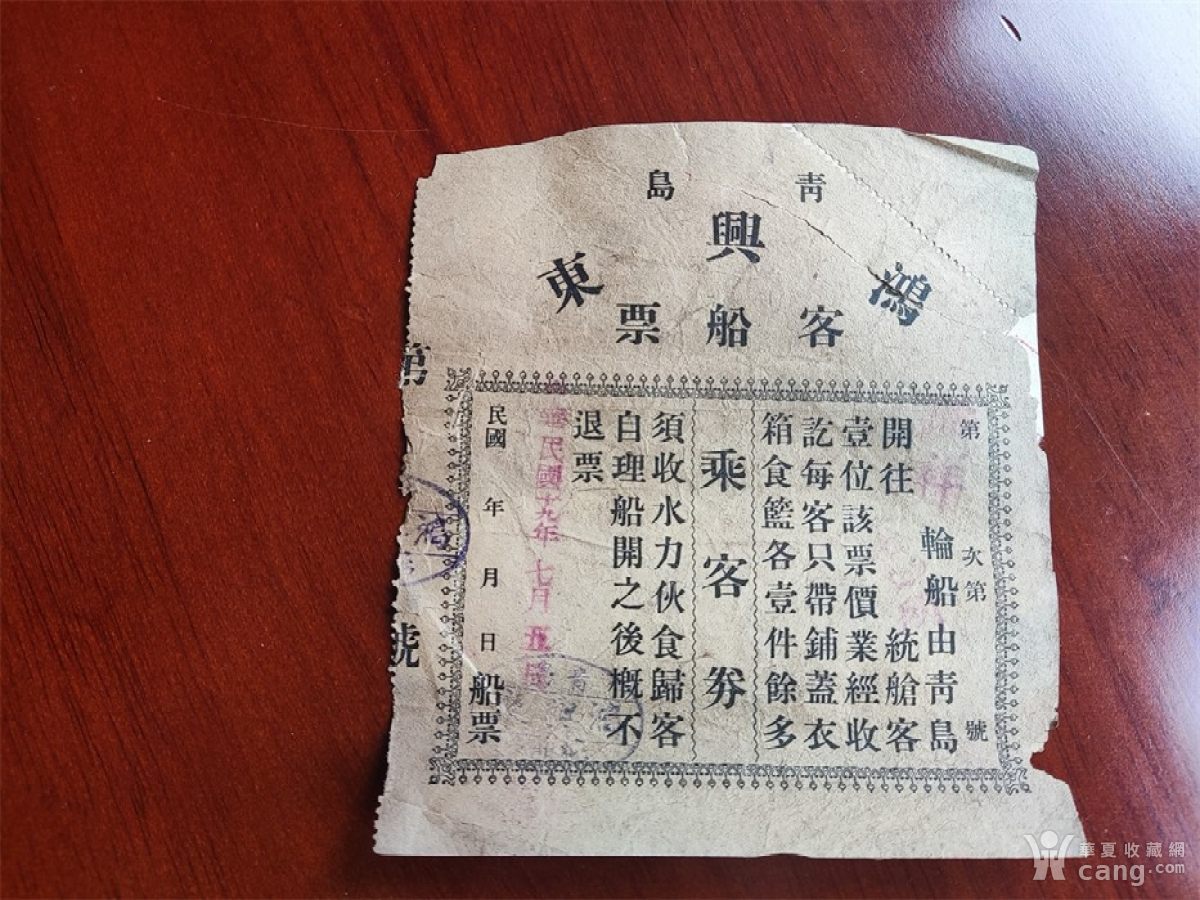 青島
鴻興東
客船票
第 次第 號
輪船由靑島
開往 統艙客
壹位該票價業經收
訖每客只帶鋪蓋衣
箱食籃各壹件餘多
乘客券
須收水力伙食歸客
自理船開之後概不
退票
民國十九年七月
民國 年 月 日 船票
第 號
華夏收藏網
cang.com